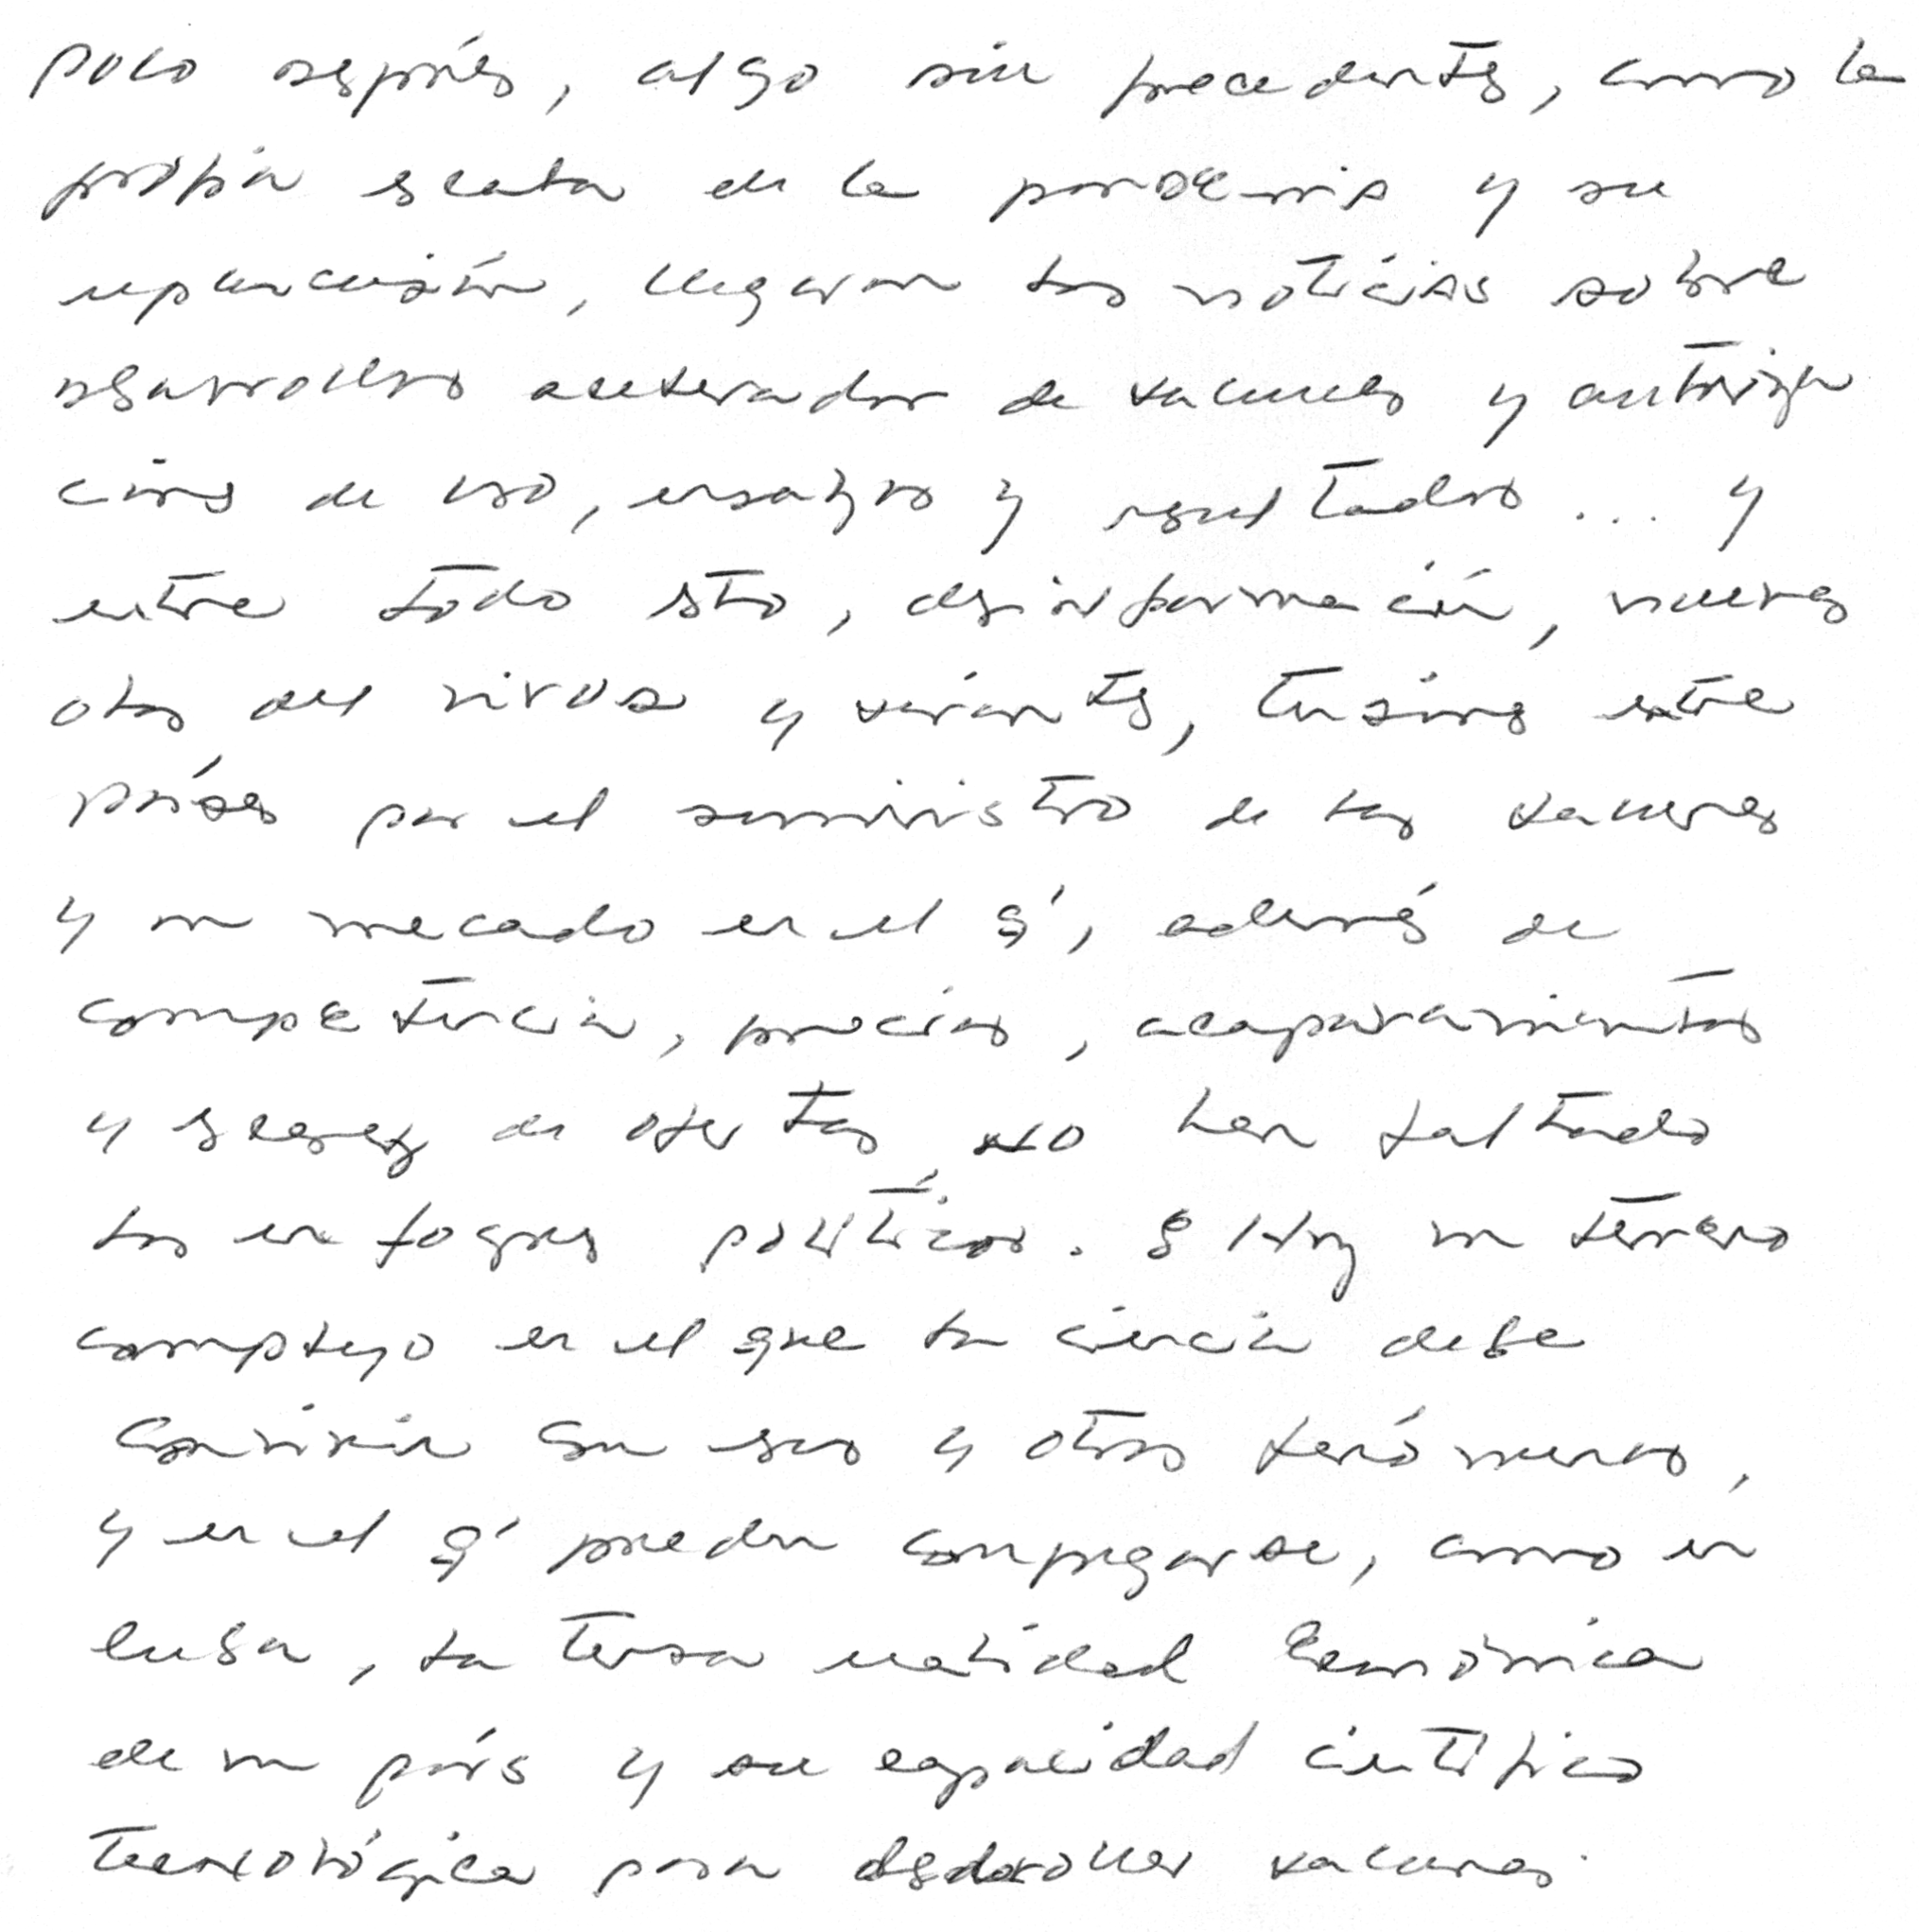 poco después, algo sin precedentes, como la
propia escala de la pandemia y su
repercusión, llegaron las noticias sobre
desarrollos acelerados de vacunas y autoriza
ciones de uso, ensayos y resultados... y
entre todo esto, desinformación, nuevas
olas del virus y variantes, tensiones entre
países por el suministro de las vacunas
y un mercado en el q', además de
competencia, precios, acaparamientos
y escasez de ofertas, no han faltado
los enfoques políticos. Es hoy un terreno
complejo en el que la ciencia debe
convivir con esos y otros fenómenos,
y en el q' pueden conjugarse, como en
Cuba, la tensa realidad económica
de un país y su capacidad científico
tecnológica para desarrollar vacunas.